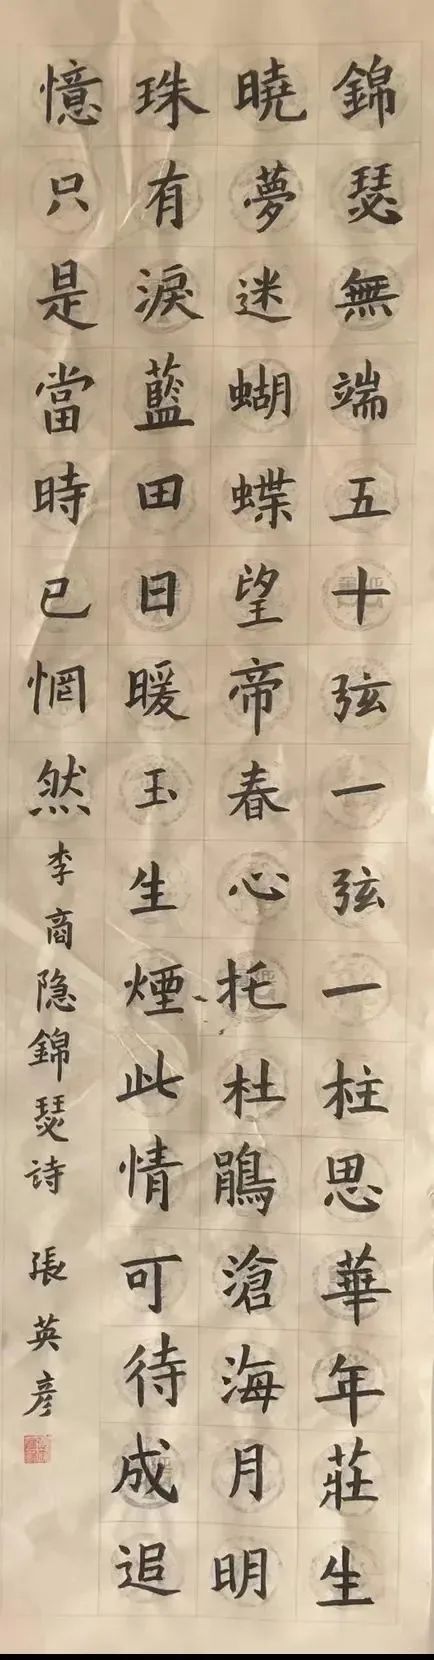 錦瑟無端五十弦一弦一柱思華年莊生
曉夢迷蝴蝶望帝春心托杜鵑滄海月明
珠有淚藍田日暖玉生煙此情可待成追
憶只是當時已惘然
李商隐錦瑟詩 張英彦